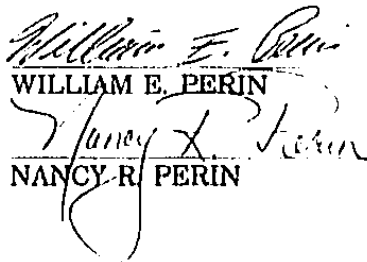 William E. Perin
WILLIAM E. PERIN
Nancy R. Perin
NANCY R. PERIN